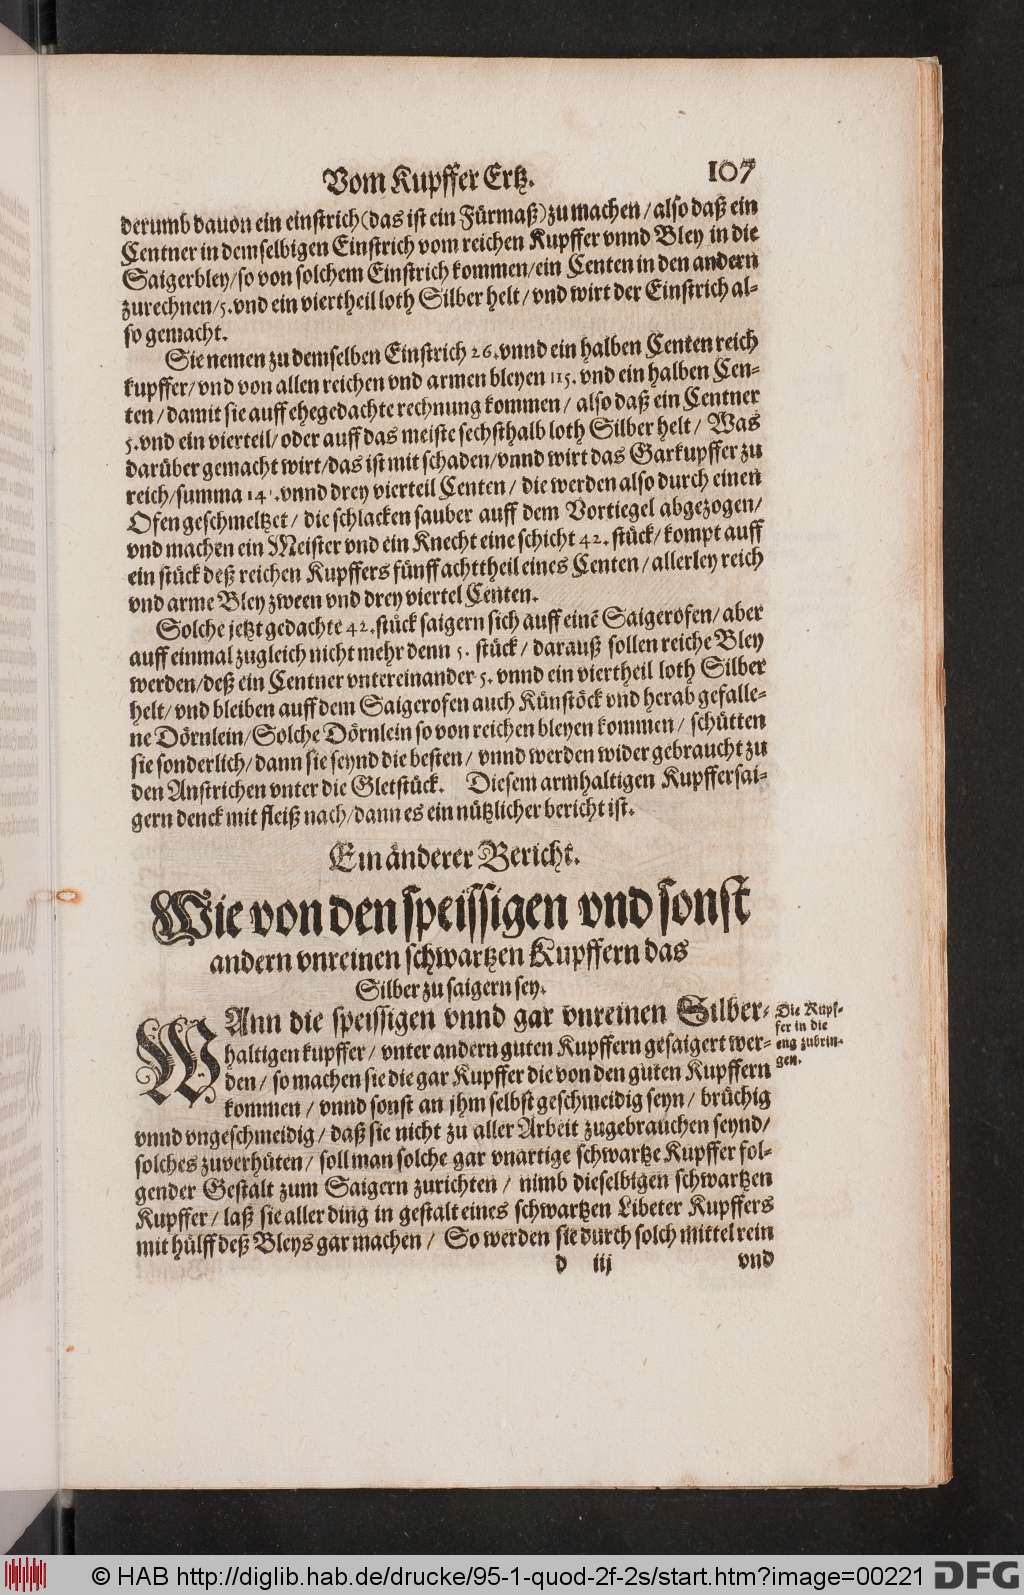 Vom Kupffer Ertz. 107
derumb dauon ein einstrich (das ist ein Fürmaß) zu machen / also daß ein
Centner in demselbigen Einstrich vom reichen Kupffer vnnd Bley in die
Saigerbley / so von solchem Einstrich kommen / ein Centen in den andern
zurechnen / 5. vnd ein viertheil loth Silber helt / vnd wirt der Einstrich al-
so gemacht.
Sie nemen zu demselben Einstrich 26. vnnd ein halben Centen reich
kupffer / vnd von allen reichen vnd armen bleyen 115. vnd ein halben Cen-
ten / damit sie auff ehegedachte rechnung kommen / also daß ein Centner
5. vnd ein vierteil / oder auff das meiste sechsthalb loth Silber helt / Was
darüber gemacht wirt / das ist mit schaden / vnnd wirt das Garkupffer zu
reich / summa 141. vnnd drey vierteil Centen / die werden also durch einen
Ofen geschmeltzet / die schlacken sauber auff dem Vortiegel abgezogen /
vnd machen ein Meister vnd ein Knecht eine schicht 42. stück / kompt auff
ein stück deß reichen Kupffers fünff achttheil eines Centen / allerley reich
vnd arme Bley zween vnd drey viertel Centen.
Solche jetzt gedachte 42. stück saigern sich auff einē Saigerofen / aber
auff einmal zugleich nicht mehr denn 5. stück / darauß sollen reiche Bley
werden / deß ein Centner vntereinander 5. vnnd ein viertheil loth Silber
helt / vnd bleiben auff dem Saigerofen auch Künstöck vnd herab gefalle-
ne Dörnlein / Solche Dörnlein so von reichen bleyen kommen / schütten
sie sonderlich / dann sie seynd die besten / vnnd werden wider gebraucht zu
den Anstrichen vnter die Gletstück. Diesem armhaltigen Kupffersai-
gern denck mit fleiß nach / dann es ein nützlicher bericht ist.
Ein änderer Bericht.
Wie von den speissigen vnd sonst
andern vnreinen schwartzen Kupffern das
Silber zu saigern sey.
WAnn die speissigen vnnd gar vnreinen Silber-
haltigen kupffer / vnter andern guten Kupffern gesaigert wer-
den / so machen sie die gar Kupffer die von den guten Kupffern
kommen / vnnd sonst an jhm selbst geschmeidig seyn / brüchig
vnnd vngeschmeidig / daß sie nicht zu aller Arbeit zugebrauchen seynd /
solches zuverhüten / soll man solche gar vnartige schwartze Kupffer fol-
gender Gestalt zum Saigern zurichten / nimb dieselbigen schwartzen
Kupffer / laß sie aller ding in gestalt eines schwartzen Libeter Kupffers
mit hülff deß Bleys gar machen / So werden sie durch solch mittel rein
d iij vnd
Die Kupf-
fer in die
eng zubrin-
gen.
© HAB http://diglib.hab.de/drucke/95-1-quod-2f-2s/start.htm?image=00221
DFG